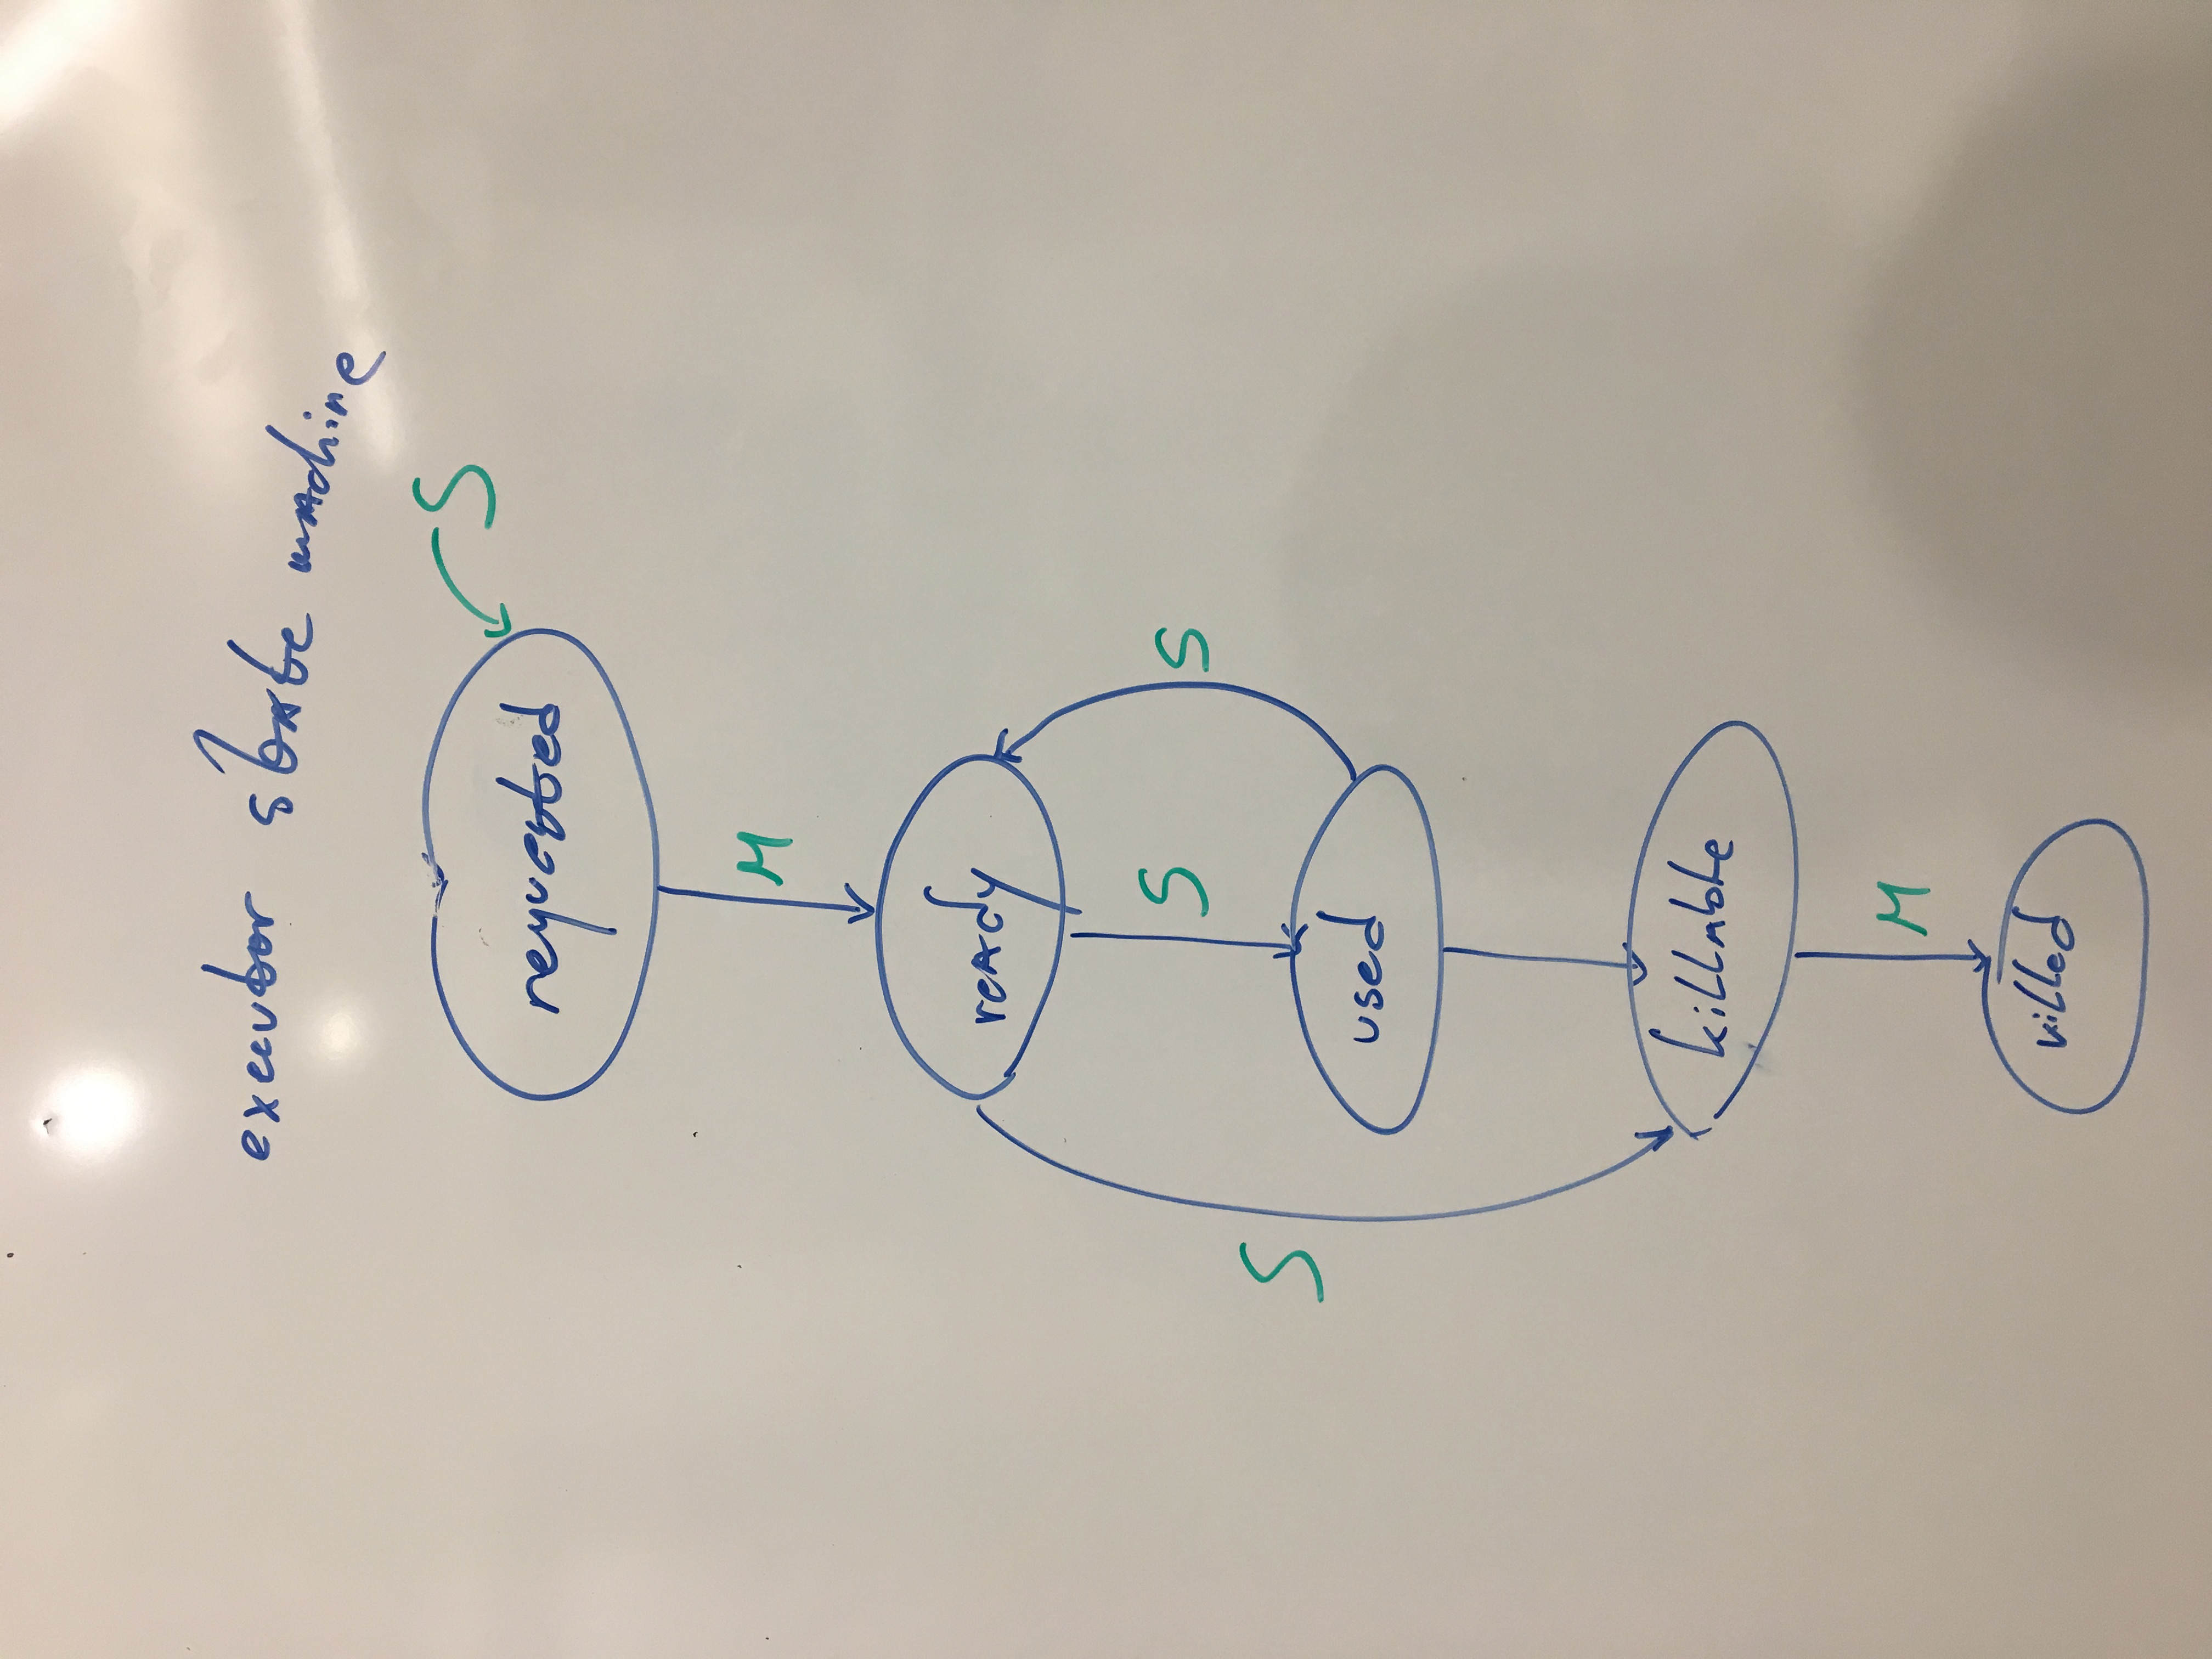 executor state machine
S
requested
M
ready
S
S
S
used
killable
M
killed